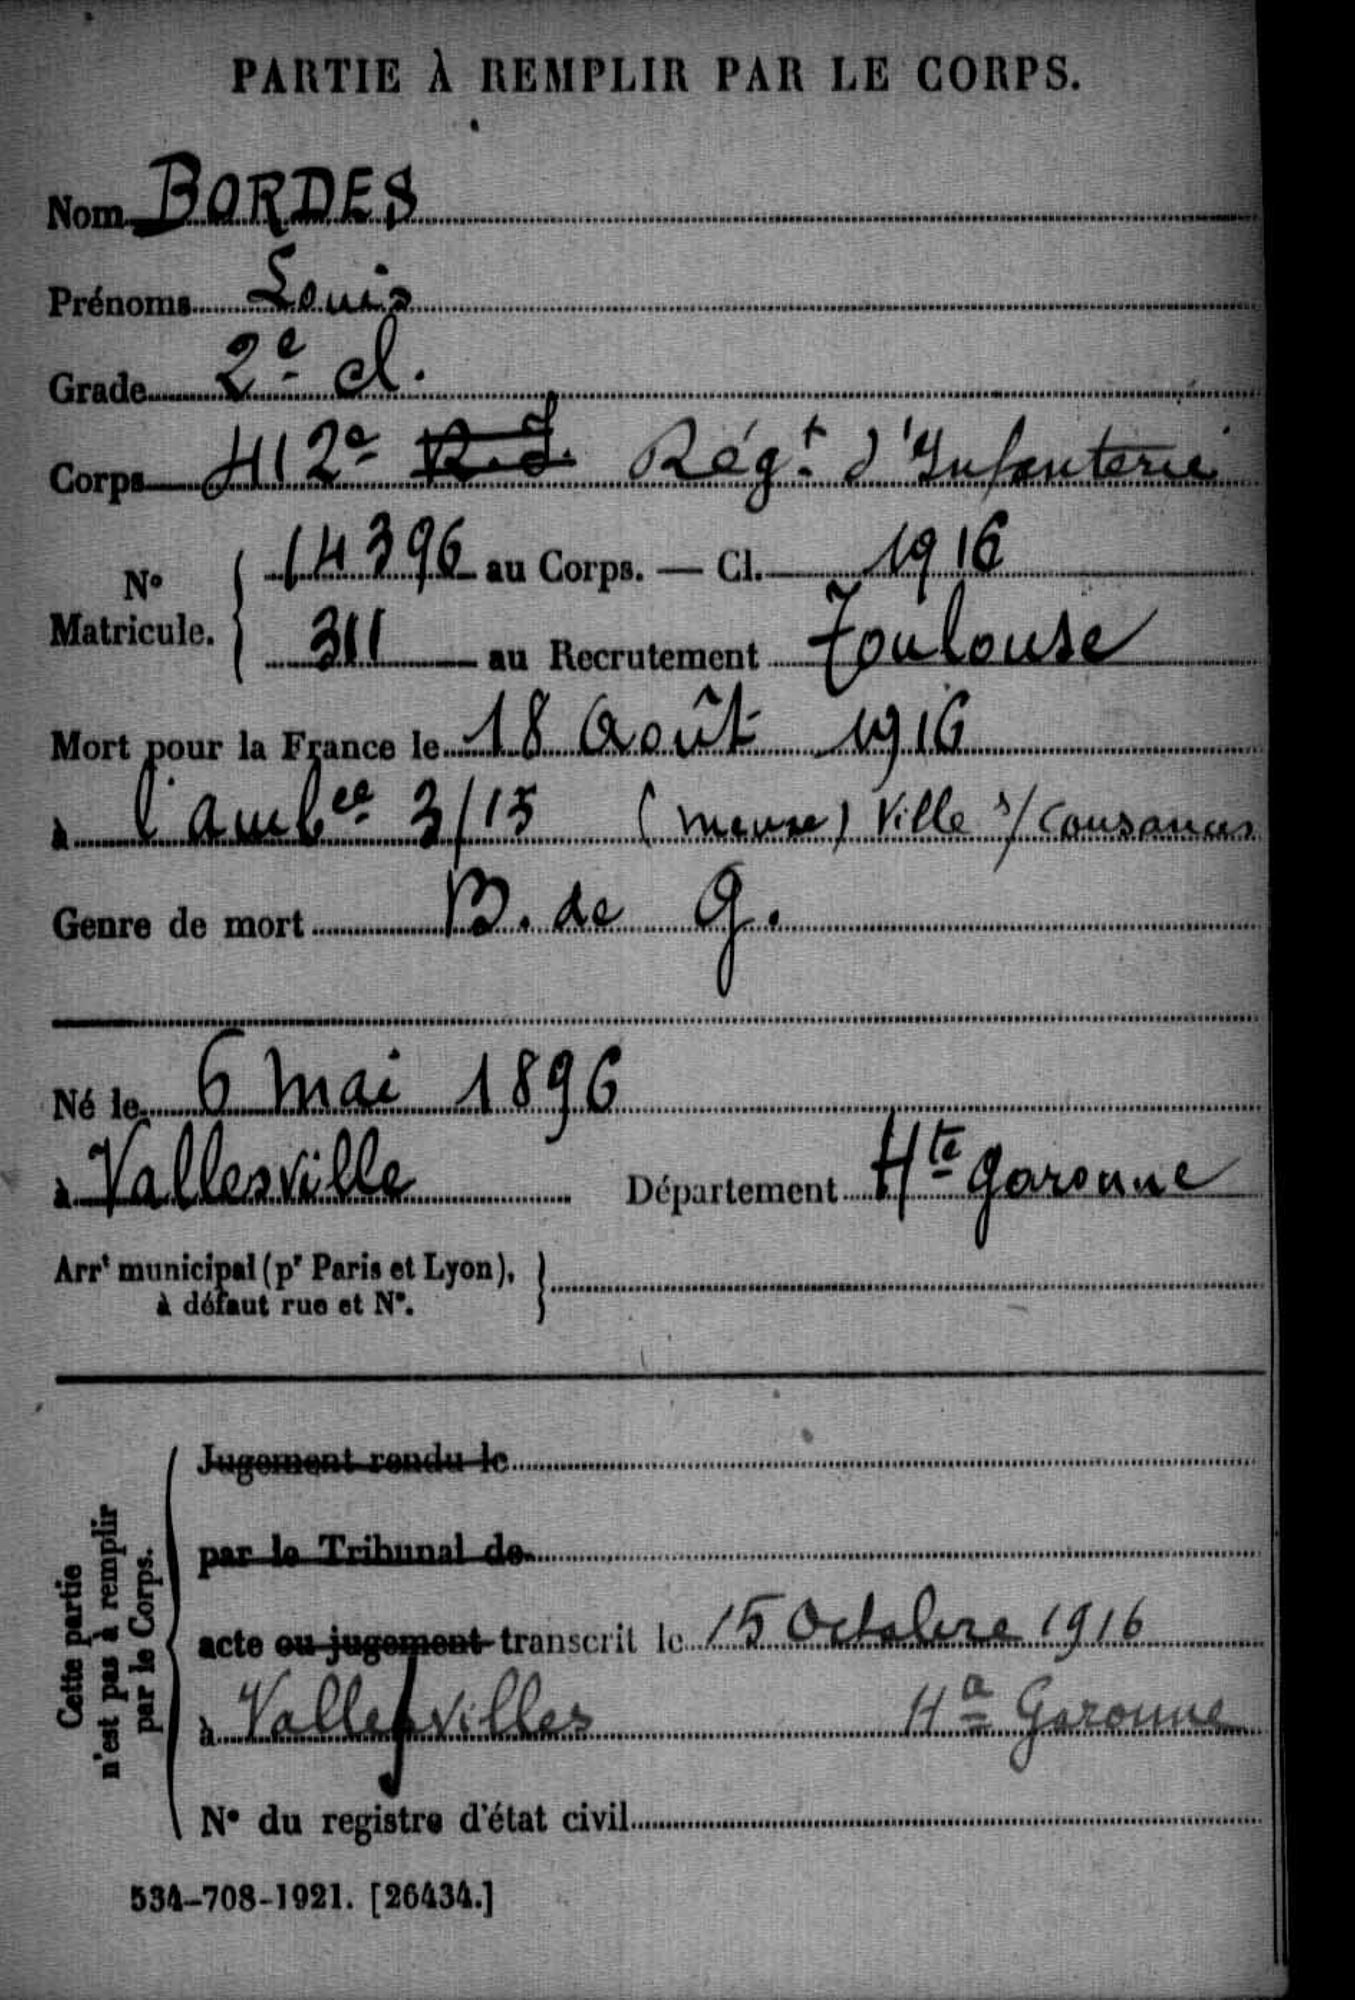 PARTIE À REMPLIR PAR LE CORPS.
Nom BORDES
Prénoms Louis
Grade 2e cl.
Corps 412e R.I. Régt d'Infanterie
No Matricule. { 14396 au Corps. — Cl. 1916
311 au Recrutement Toulouse
Mort pour la France le 18 Août 1916
à l'ambce 3/15 (Meuse) Ville s/ Cousances
Genre de mort B. de G.
Né le 6 Mai 1896
à Vallesville Département Hte Garonne
Arrt municipal (pr Paris et Lyon), }
à défaut rue et No.
Cette partie
n'est pas à remplir
par le Corps.
Jugement rendu le
par le Tribunal de
acte ou jugement transcrit le 15 Octobre 1916
à Vallesvilles Hte Garonne
No du registre d'état civil
534-708-1921. [26434.]